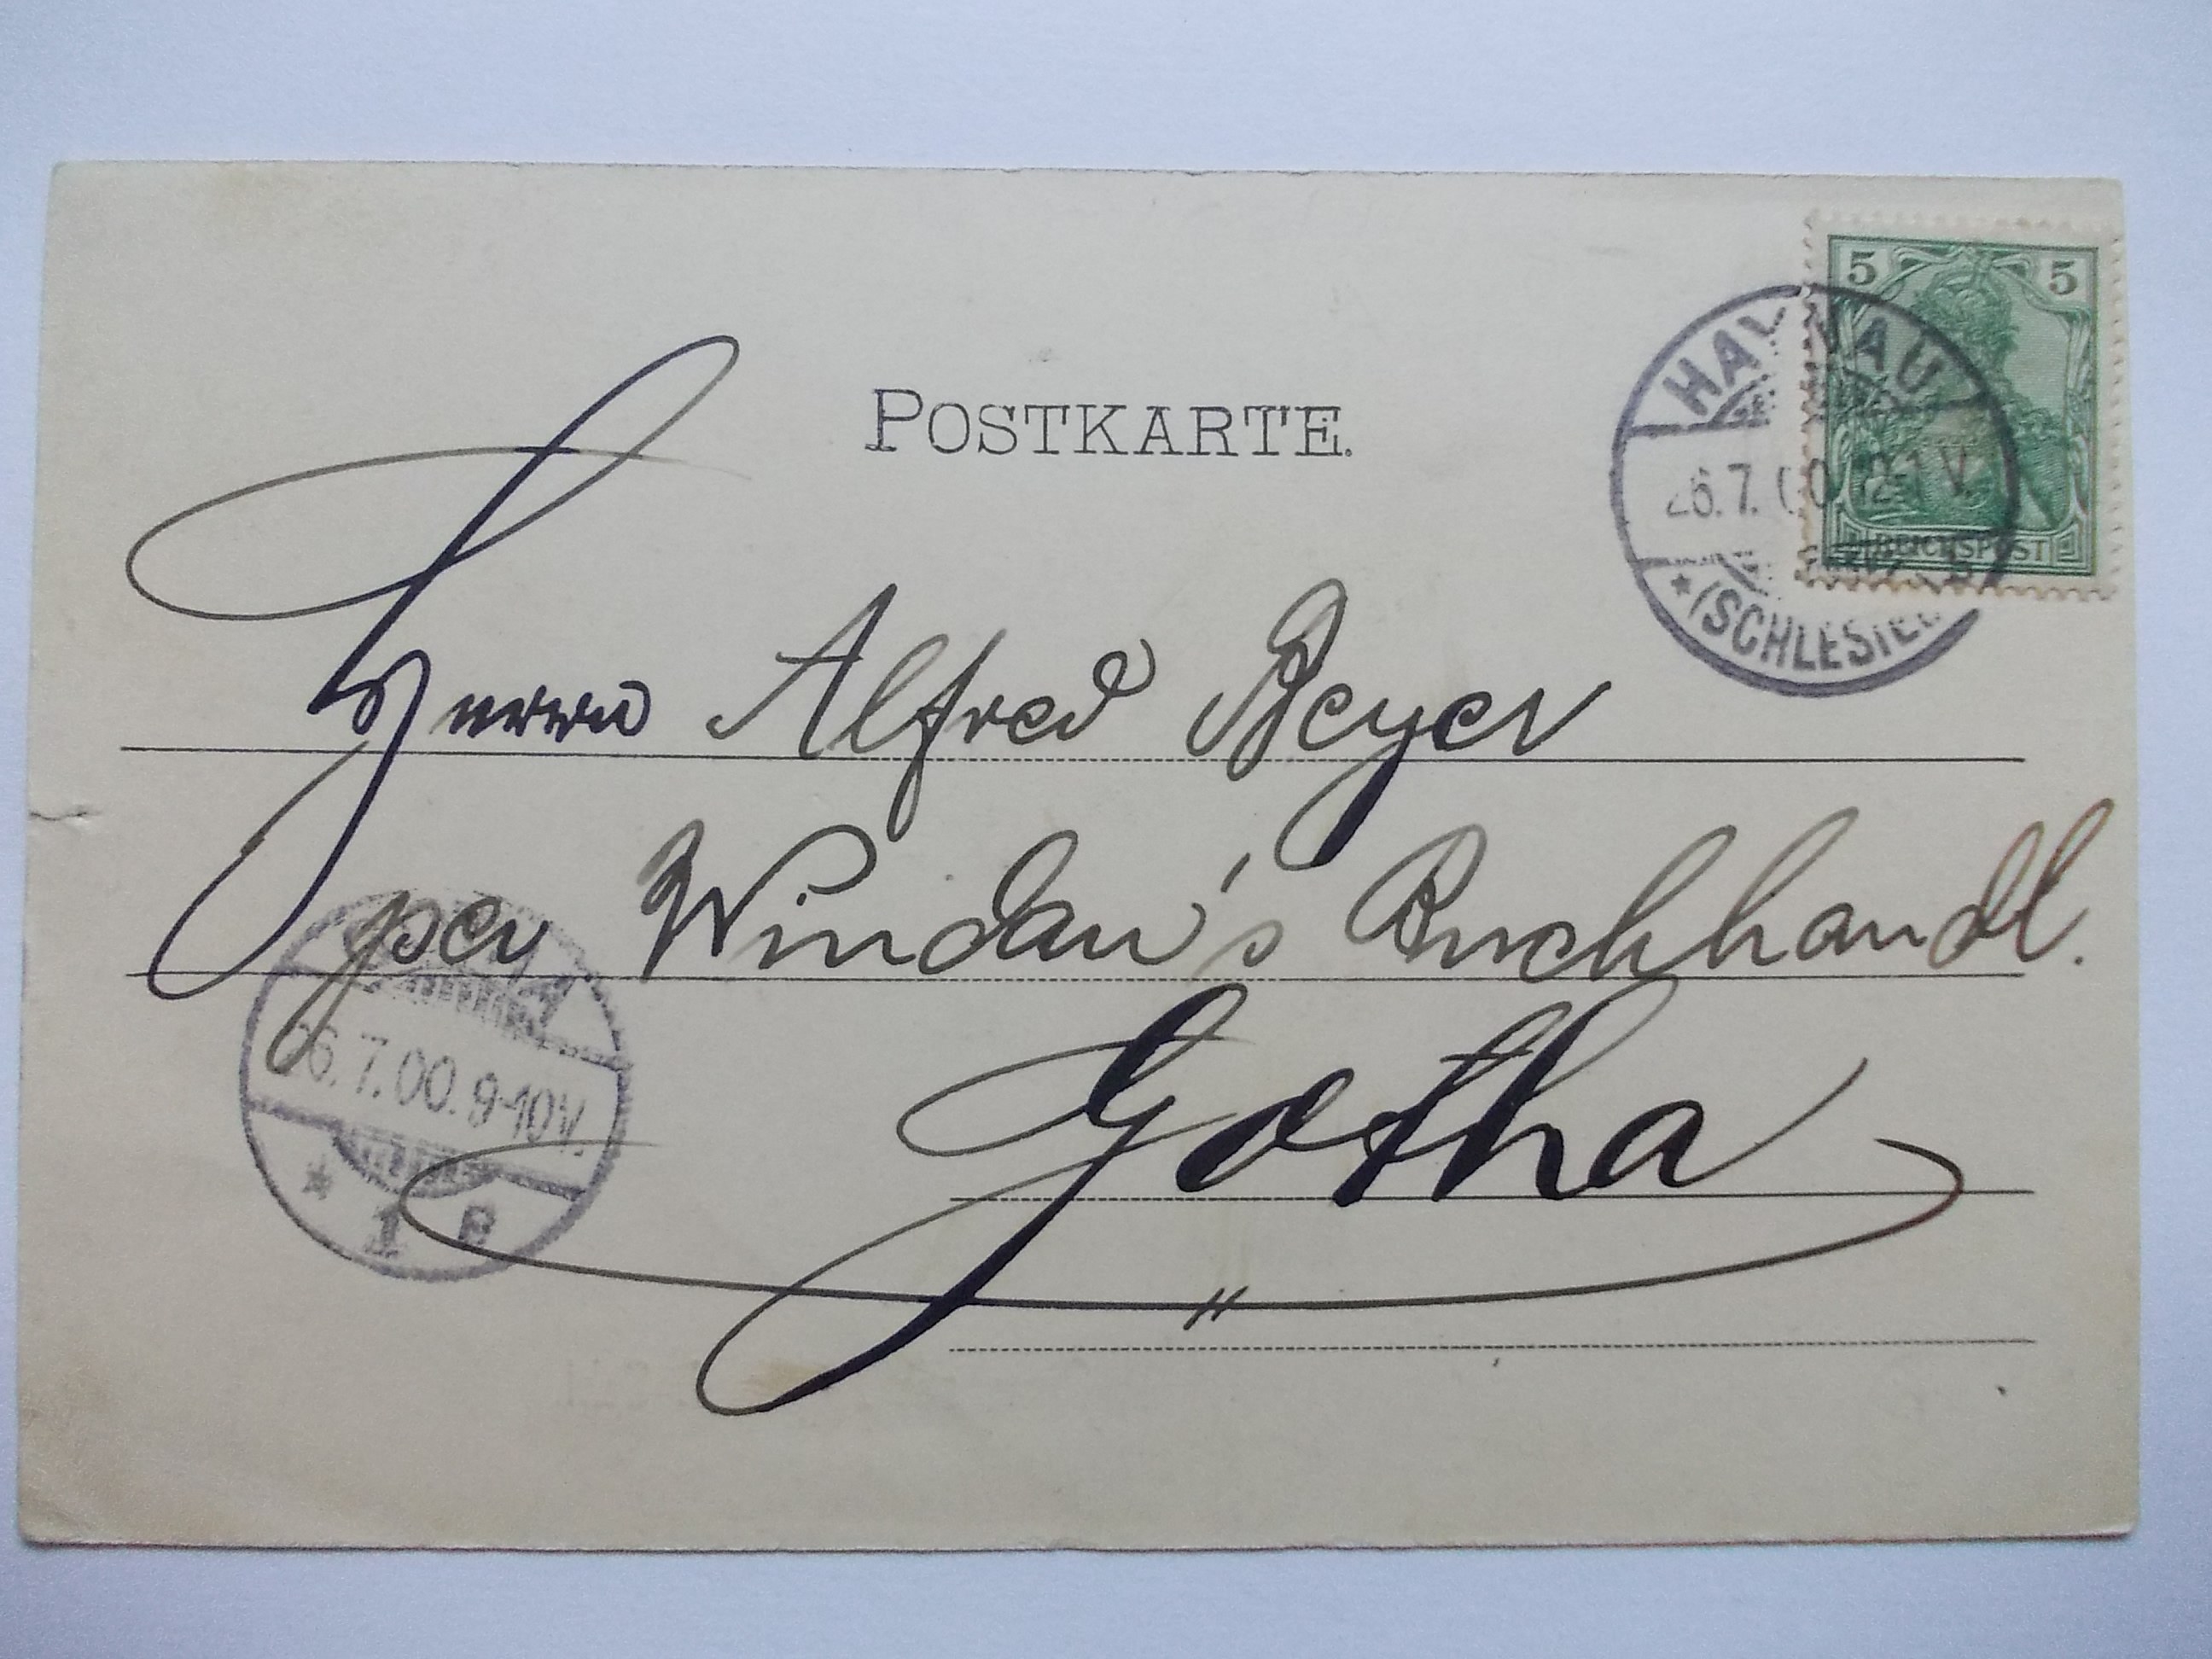 POSTKARTE.
5 5
HAYNAU
26.7.00 12-1 V.
* (SCHLESIEN)
REICHSPOST
Herrn Alfred Beyer
per Windau's Buchhandl.
Gotha
26.7.00. 9-10V.
* 1